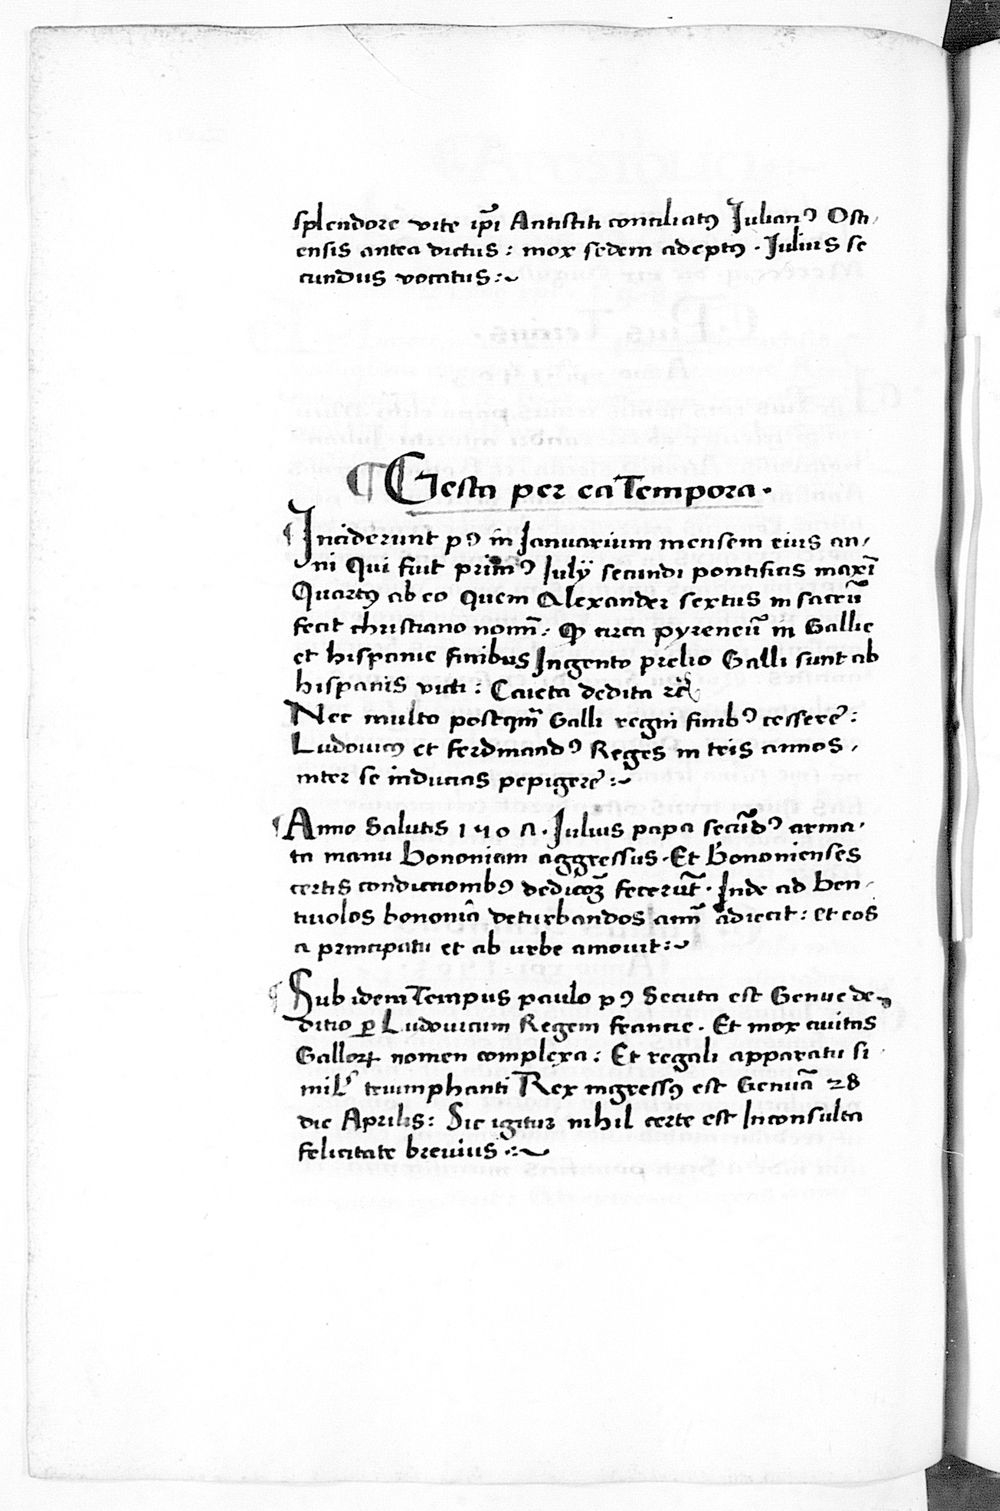 splendore vite ip̄i Antistiti conciliatꝰ Julianꝰ Osti,
ensis antea dictus: mox sedem adeptꝰ. Julius se
cundus vocatus:~
¶ Gesta per ea Tempora.
¶ Inciderunt pꝰ in Januarium mensem eius an,
ni Qui fuit primꝰ Julÿ secundi pontificis maxī
Quartꝰ ab eo quem Alexander sextus in sacrū
fecit christiano nomī: Ꝙ circa pyreneū in Gallie
et hispanie finibus Ingento prelio Galli sunt ab
hispanis victi: Caieta dedita ⁊c̄
Nec multo postqm̄ Galli regni finibꝰ cesserē:
Ludovicꝰ et ferdinandꝰ Reges in treis annos,
inter se inducias pepigerē:~
¶ Anno Salutis Julius papa secūdꝰ arma,
ta manu bononiam aggressus. Et bononienses
certis condicionibꝰ dedicōꝫ fecerūt. Inde ad ben,
tivolos bononiā deturbandos anī adiecit: et eos
a principatu et ab urbe amouit:~
¶ Sub idem Tempus paulo pꝰ Secuta est Genue de,
ditio ꝑ Ludovicum Regem francie. Et mox civitas
Galloꝝ nomen complexa: Et regali apparatu si
mil' triumphanti Rex ingressꝰ est Genuā 28
die Aprilis: Sic igitur nihil certe est Inconsulta
felicitate brevius:~